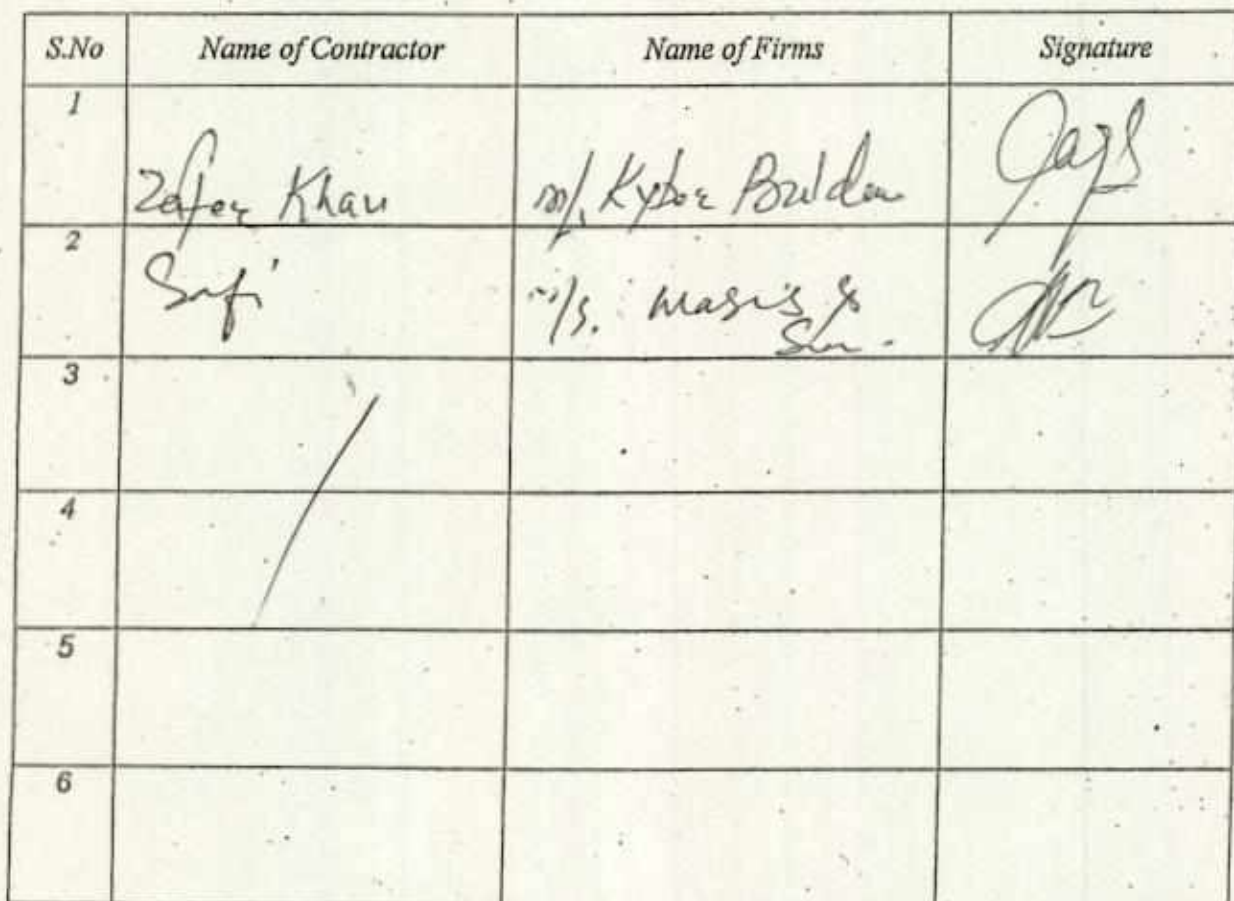 S.No Name of Contractor Name of Firms Signature
1
Zafar Khan M/s. Builders
2
Safi M/s. &
3
4
5
6